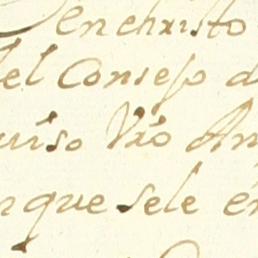 en christo
del Consejo d
uiso Vro An
nque sele en